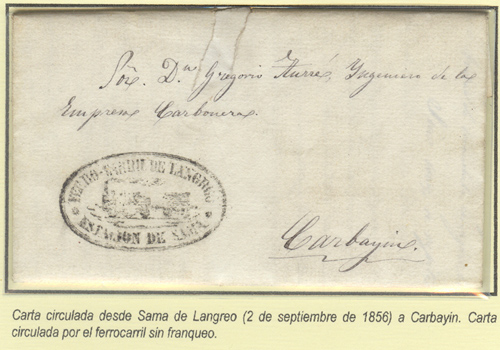 Sör. Dn. Gregorio Aurré, Yngeniero de la
Empresa Carbonera.
FERRO-CARRIL DE LANGREO
ESTACION DE SAMA
Carbayin.
Carta circulada desde Sama de Langreo (2 de septiembre de 1856) a Carbayin. Carta
circulada por el ferrocarril sin franqueo.